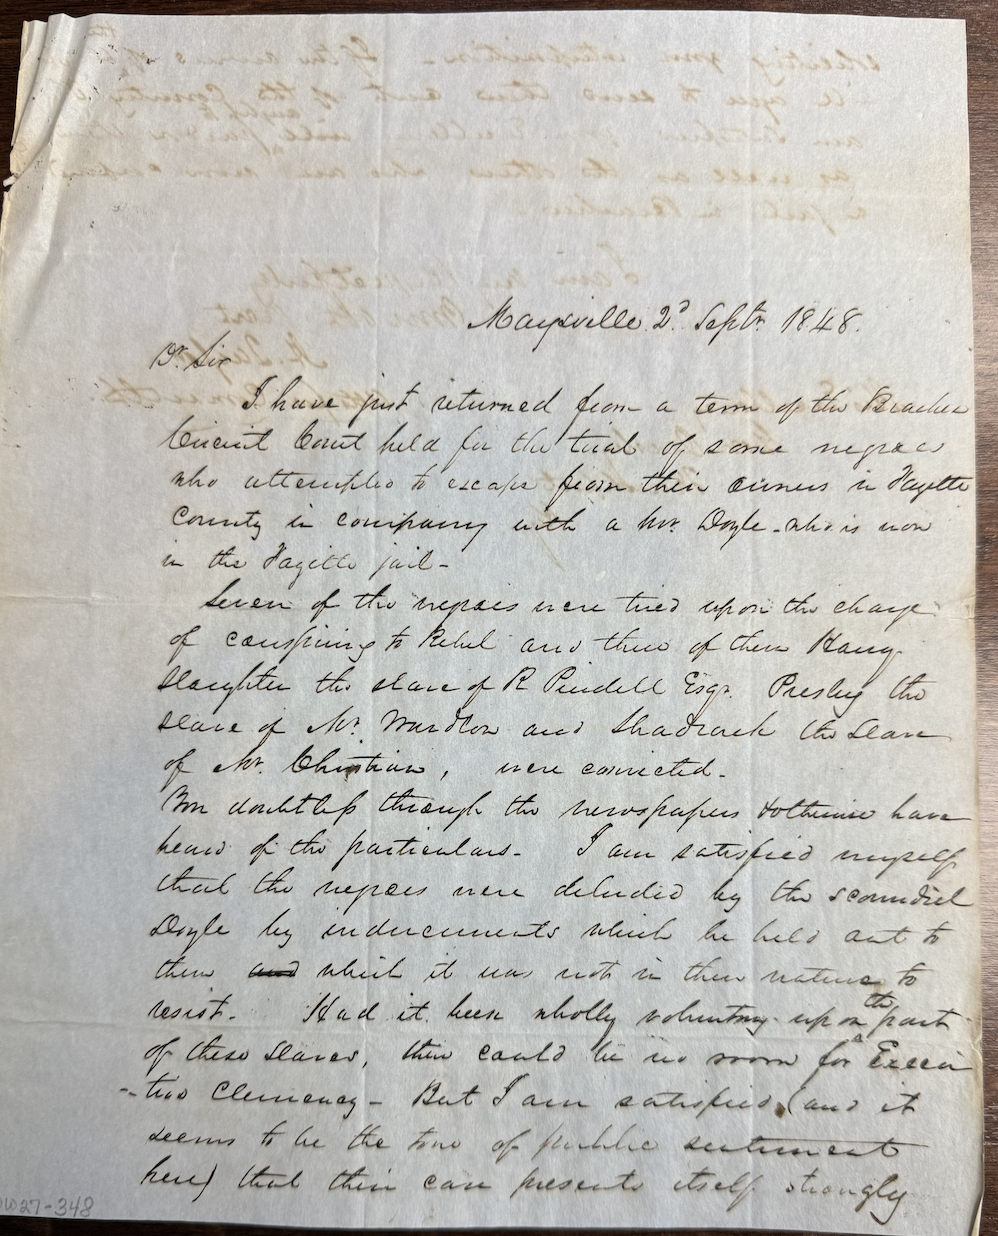 Maysville 2d Septr. 1848.
Dr. Sir
I have just returned from a term of the Bracken
Circuit Court held for the trial of some negroes
who attempted to escape from their owners in Fayette
County in company with a Mr. Doyle - who is now
in the Fayette jail -
Seven of the negroes were tried upon the charge
of conspiring to Rebel and three of them Harry
Slaughter the slave of R Pindell Esqr. Presley the
slave of Mr. Wardlow and Shadrach the slave
of Mr. Christian, were convicted -
You doubtless through the newspapers & otherwise have
heard of the particulars - I am satisfied myself
that the negroes were deluded by the scoundrel
Doyle by inducements which he held out to
them and which it was not in their nature to
resist. Had it been wholly voluntary upon the part
of these slaves, there could be no room for Execu
-tive Clemency - But I am satisfied (and it
seems to be the tone of public sentiment
here) that their case presents itself strongly
27-348